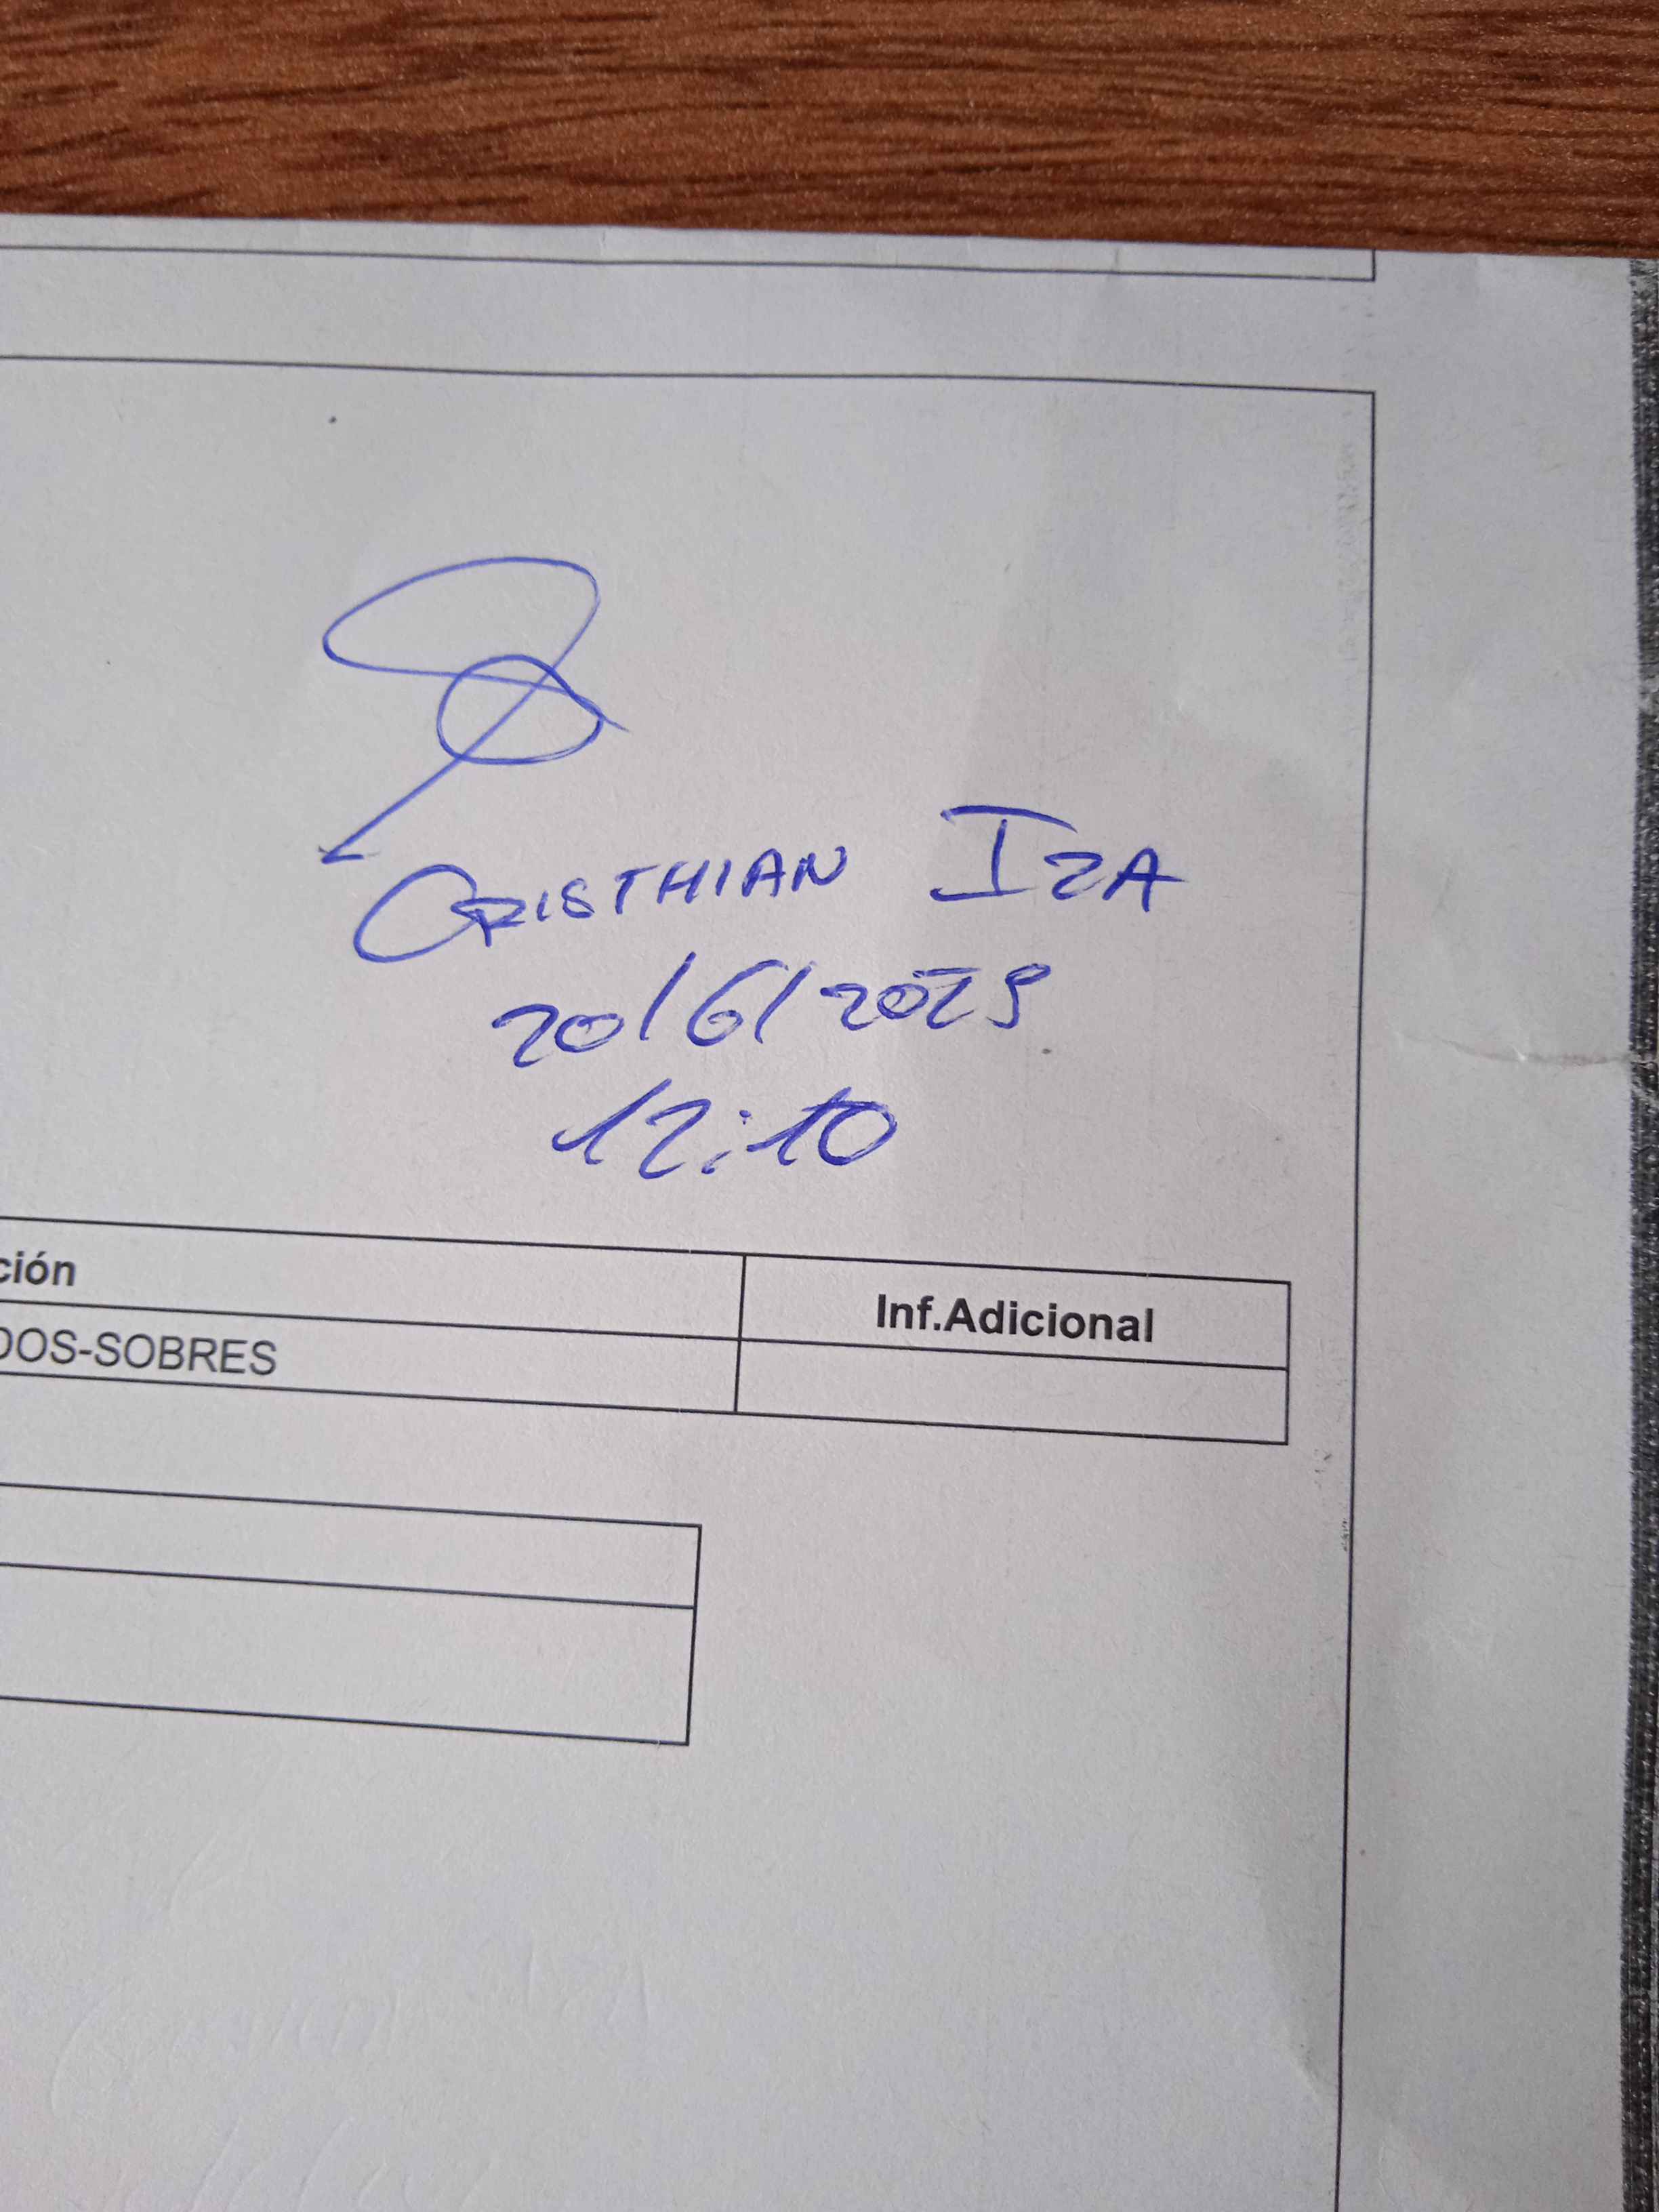 CRISTHIAN IZA
20/6/2025
12:10
ción
Inf.Adicional
DOS-SOBRES